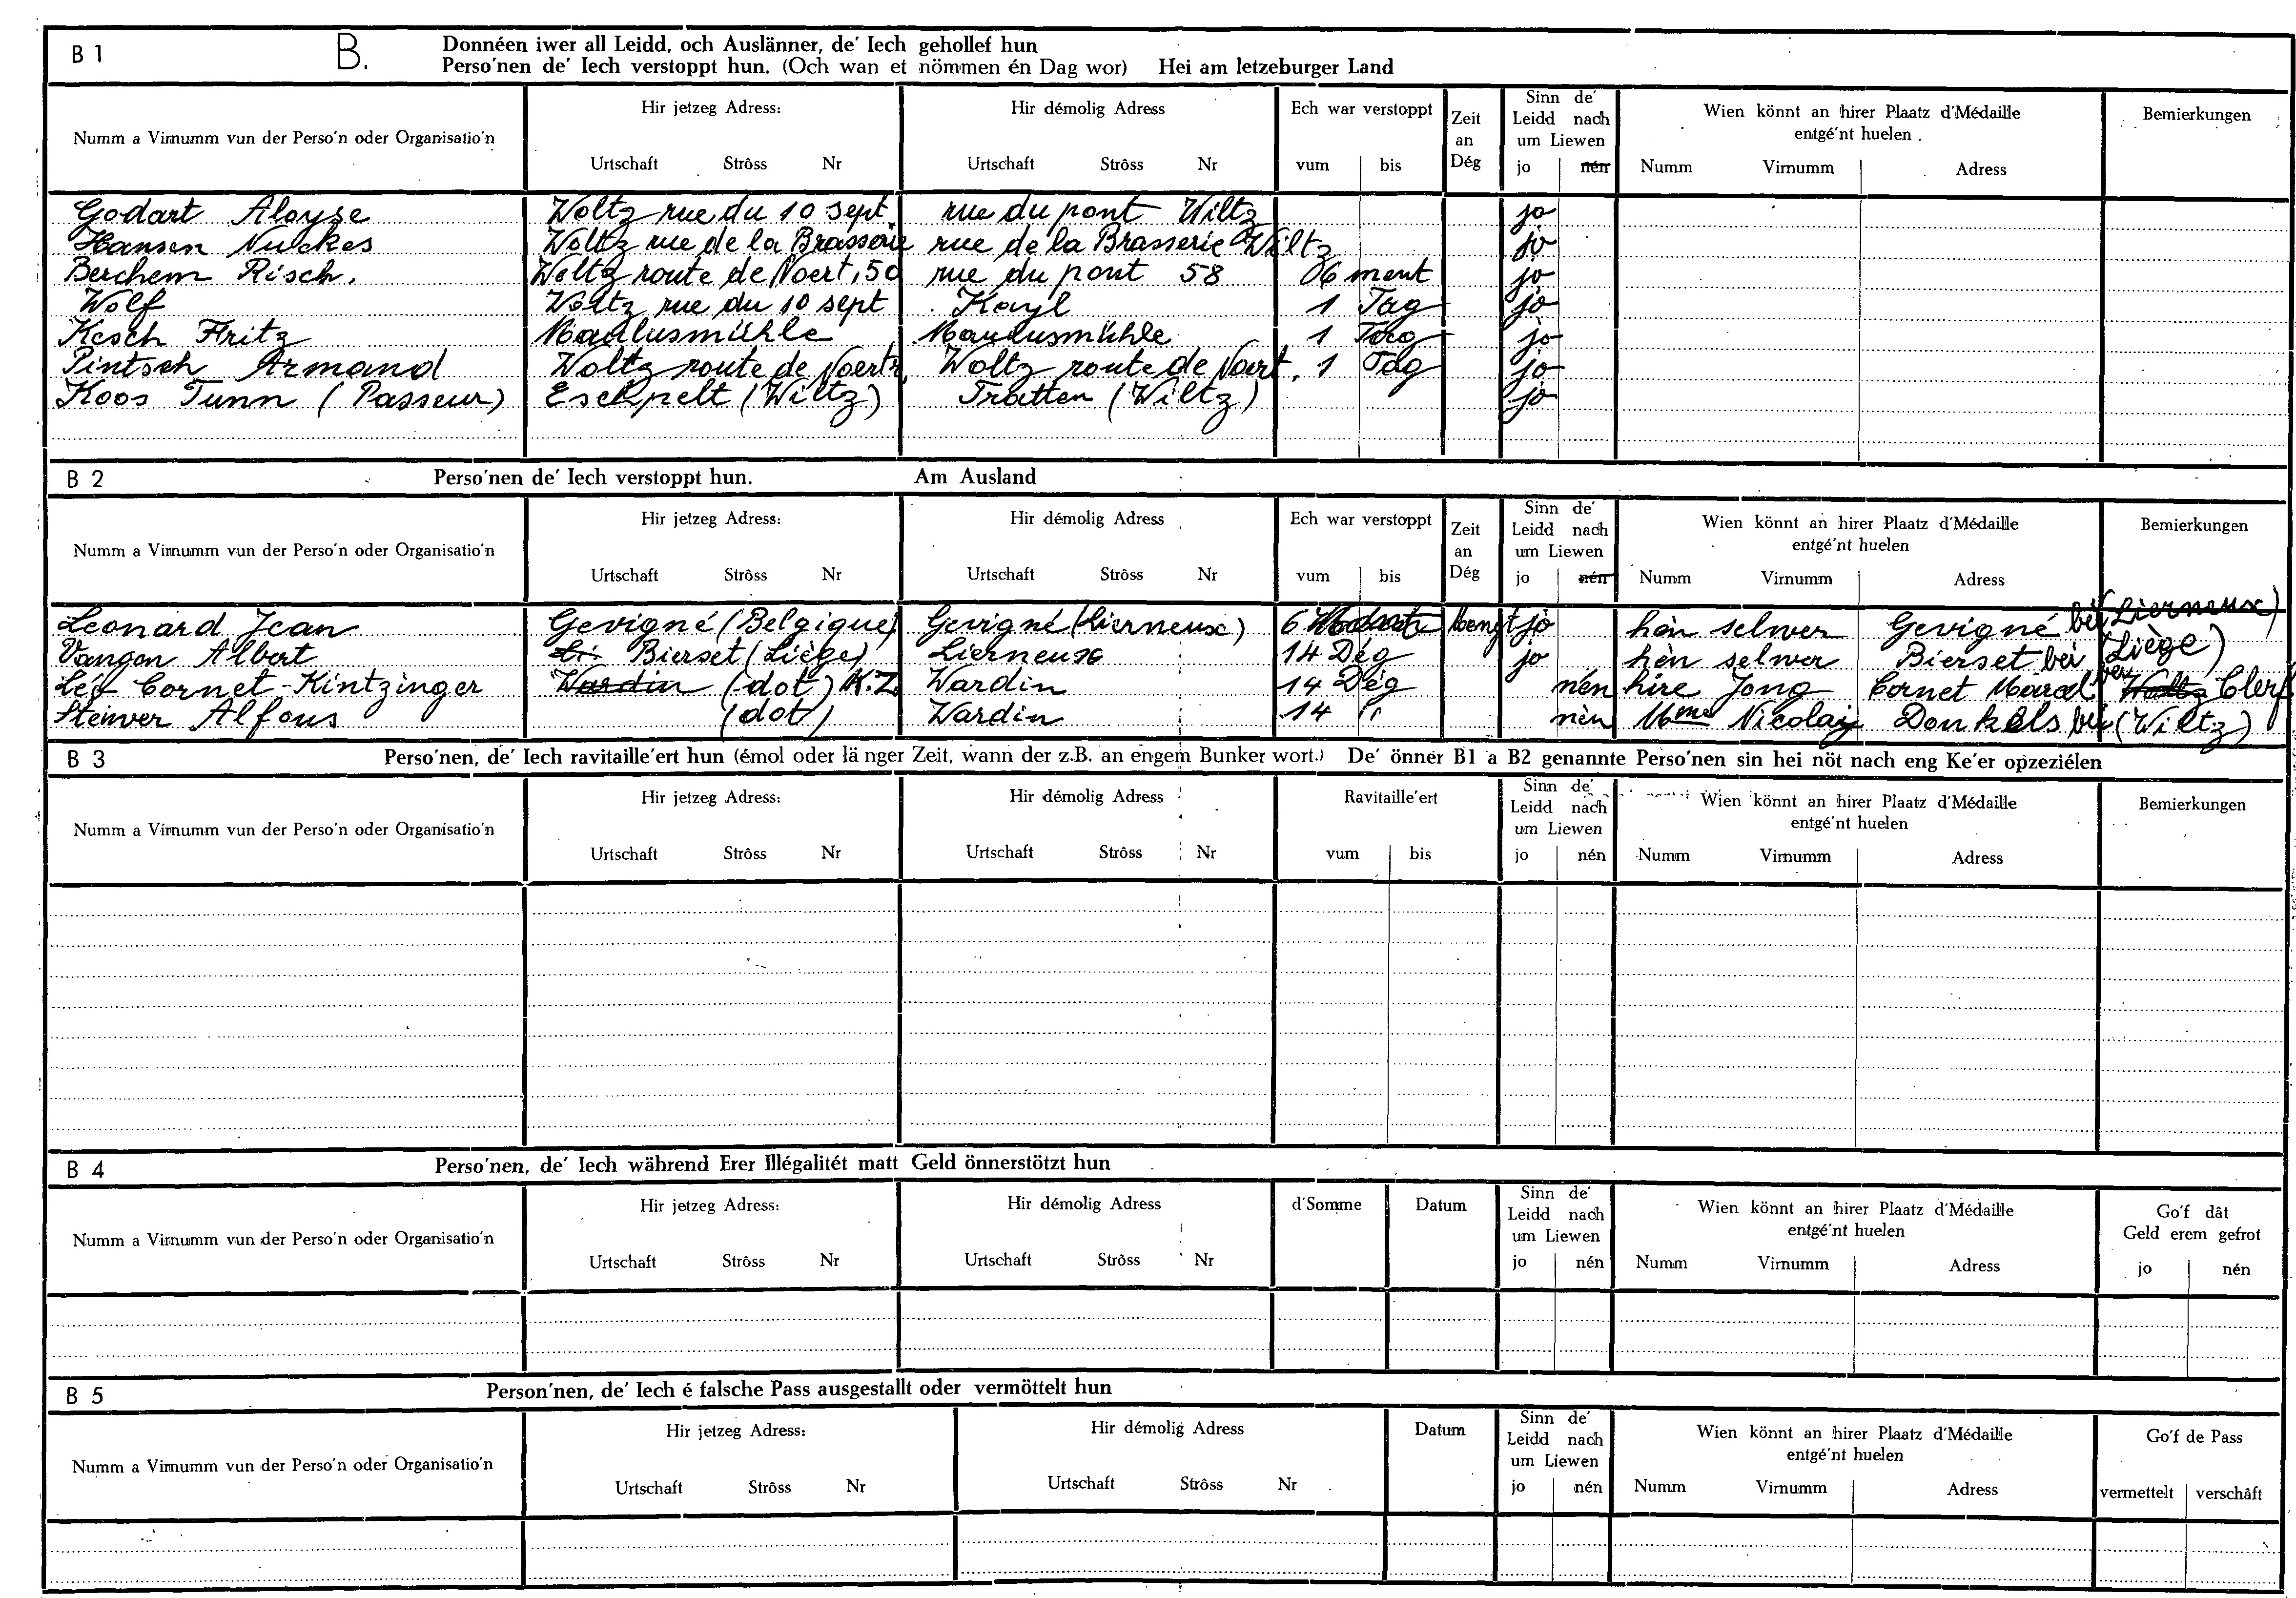 B 1 B. Donnéen iwer all Leidd, och Auslänner, de' Iech gehollef hun
Perso'nen de' Iech verstoppt hun. (Och wan et nömmen én Dag wor) Hei am letzeburger Land
Numm a Virnumm vun der Perso'n oder Organisatio'n Hir jetzeg Adress: Hir démolig Adress Ech war verstoppt Zeit an Dég Sinn de' Leidd nach um Liewen Wien könnt an hirer Plaatz d'Médaille entgé'nt huelen Bemierkungen
Urtschaft Strôss Nr Urtschaft Strôss Nr vum bis jo nén Numm Virnumm Adress
Godart Aloyse Woltz rue du 10 sept. rue du pont Wiltz jo
Hansen Nuckes Woltz rue de la Brasserie rue de la Brasserie Wiltz jo
Berchem Risch. Woltz route de Noert, 50 rue du pont 58 06 ment jo
Wolf Woltz rue du 10 sept Kayl 1 Tag jo
Kesch Fritz Maulusmühle Maulusmühle 1 Tag jo
Pintsch Armand Woltz route de Noert Woltz route de Noert. 1 Tag jo
Koos Tunn (Passeur) Eschpelt (Wiltz) (Wiltz) jo
B 2 Perso'nen de' Iech verstoppt hun. Am Ausland
Numm a Virnumm vun der Perso'n oder Organisatio'n Hir jetzeg Adress: Hir démolig Adress Ech war verstoppt Zeit an Dég Sinn de' Leidd nach um Liewen Wien könnt an hirer Plaatz d'Médaille entgé'nt huelen Bemierkungen
Urtschaft Strôss Nr Urtschaft Strôss Nr vum bis jo nén Numm Virnumm Adress
Leonard Jean Gevigné (Belgique) Gevigné (Lierneux) 6 jo hén selwer Gevigné bei (Lierneux)
Vangon Albert Bierset (Liège) Lierneux 14 Dég jo hèn selwer Bierset bei Liège)
Léo Cornet-Kintzinger Wardin (dot) K.Z. Wardin 14 Dég nén hire Jong Cornet Marcel bei Woltz Clerf
Steiwer Alfons (dot) Wardin 14 " nèn Mme Nicolay Donkels bei (Wiltz)
B 3 Perso'nen, de' Iech ravitaille'ert hun (émol oder länger Zeit, wann der z.B. an engem Bunker wort.) De' önner B1 a B2 genannte Perso'nen sin hei nöt nach eng Ke'er opzeziélen
Numm a Virnumm vun der Perso'n oder Organisatio'n Hir jetzeg Adress: Hir démolig Adress Ravitaille'ert Sinn de' Leidd nach um Liewen Wien könnt an hirer Plaatz d'Médaille entgé'nt huelen Bemierkungen
Urtschaft Strôss Nr Urtschaft Strôss Nr vum bis jo nén Numm Virnumm Adress
B 4 Perso'nen, de' Iech während Erer Illégalitét matt Geld önnerstötzt hun
Numm a Virnumm vun der Perso'n oder Organisatio'n Hir jetzeg Adress: Hir démolig Adress d'Somme Datum Sinn de' Leidd nach um Liewen Wien könnt an hirer Plaatz d'Médaille entgé'nt huelen Go'f dât Geld erem gefrot
Urtschaft Strôss Nr Urtschaft Strôss Nr jo nén Numm Virnumm Adress jo nén
B 5 Person'nen, de' Iech é falsche Pass ausgestallt oder vermöttelt hun
Numm a Virnumm vun der Perso'n oder Organisatio'n Hir jetzeg Adress: Hir démolig Adress Datum Sinn de' Leidd nach um Liewen Wien könnt an hirer Plaatz d'Médaille entgé'nt huelen Go'f de Pass
Urtschaft Strôss Nr Urtschaft Strôss Nr jo nén Numm Virnumm Adress vermettelt verschâft